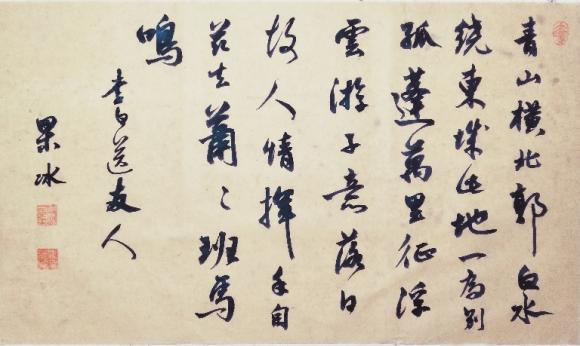 青山橫北郭白水
繞東城此地一為別
孤蓬萬里征浮
雲游子意落日
故人情揮手自
茲去蕭〻班馬
鳴
李白送友人
果冰